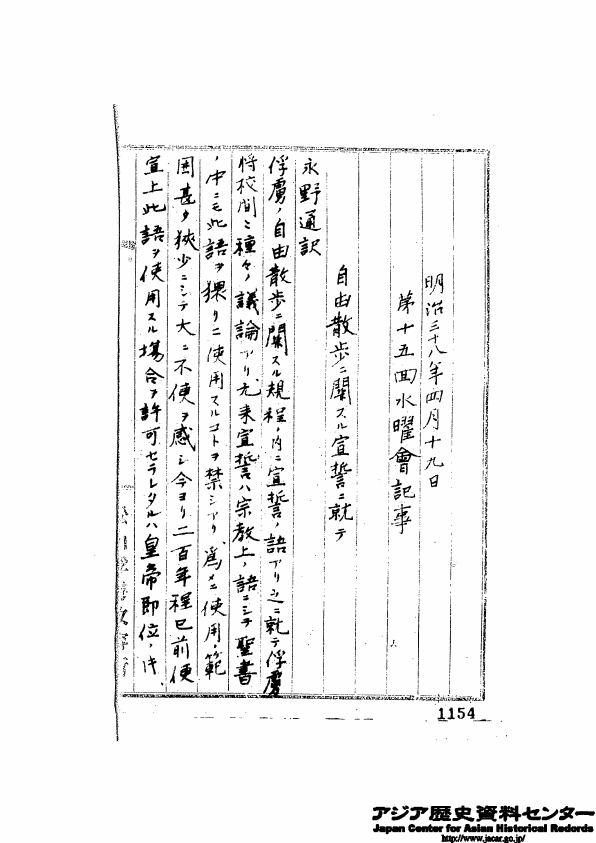 明治三十八年四月十九日
第十五回水曜會記事
自由散歩ニ關スル宣誓ニ就テ
永野通訳
俘虜ノ自由散歩ニ關スル規程ノ内ニ宣誓ノ語アリ之ニ就テ俘虜
将校間ニ種々ノ議論アリ元来宣誓ハ宗教上ノ語ニシテ聖書
ノ中ニモ此語ヲ猥リニ使用スルコトヲ禁シアリ為メニ使用ノ範
囲甚タ狭少ニシテ大ニ不便ヲ感シ今ヨリ二百年程已前便
宜上此語ヲ使用スル場合ヲ許可セラレタルハ皇帝即位ノ時、
1154
アジア歴史資料センター
Japan Center for Asian Historical Records
http://www.jacar.go.jp/